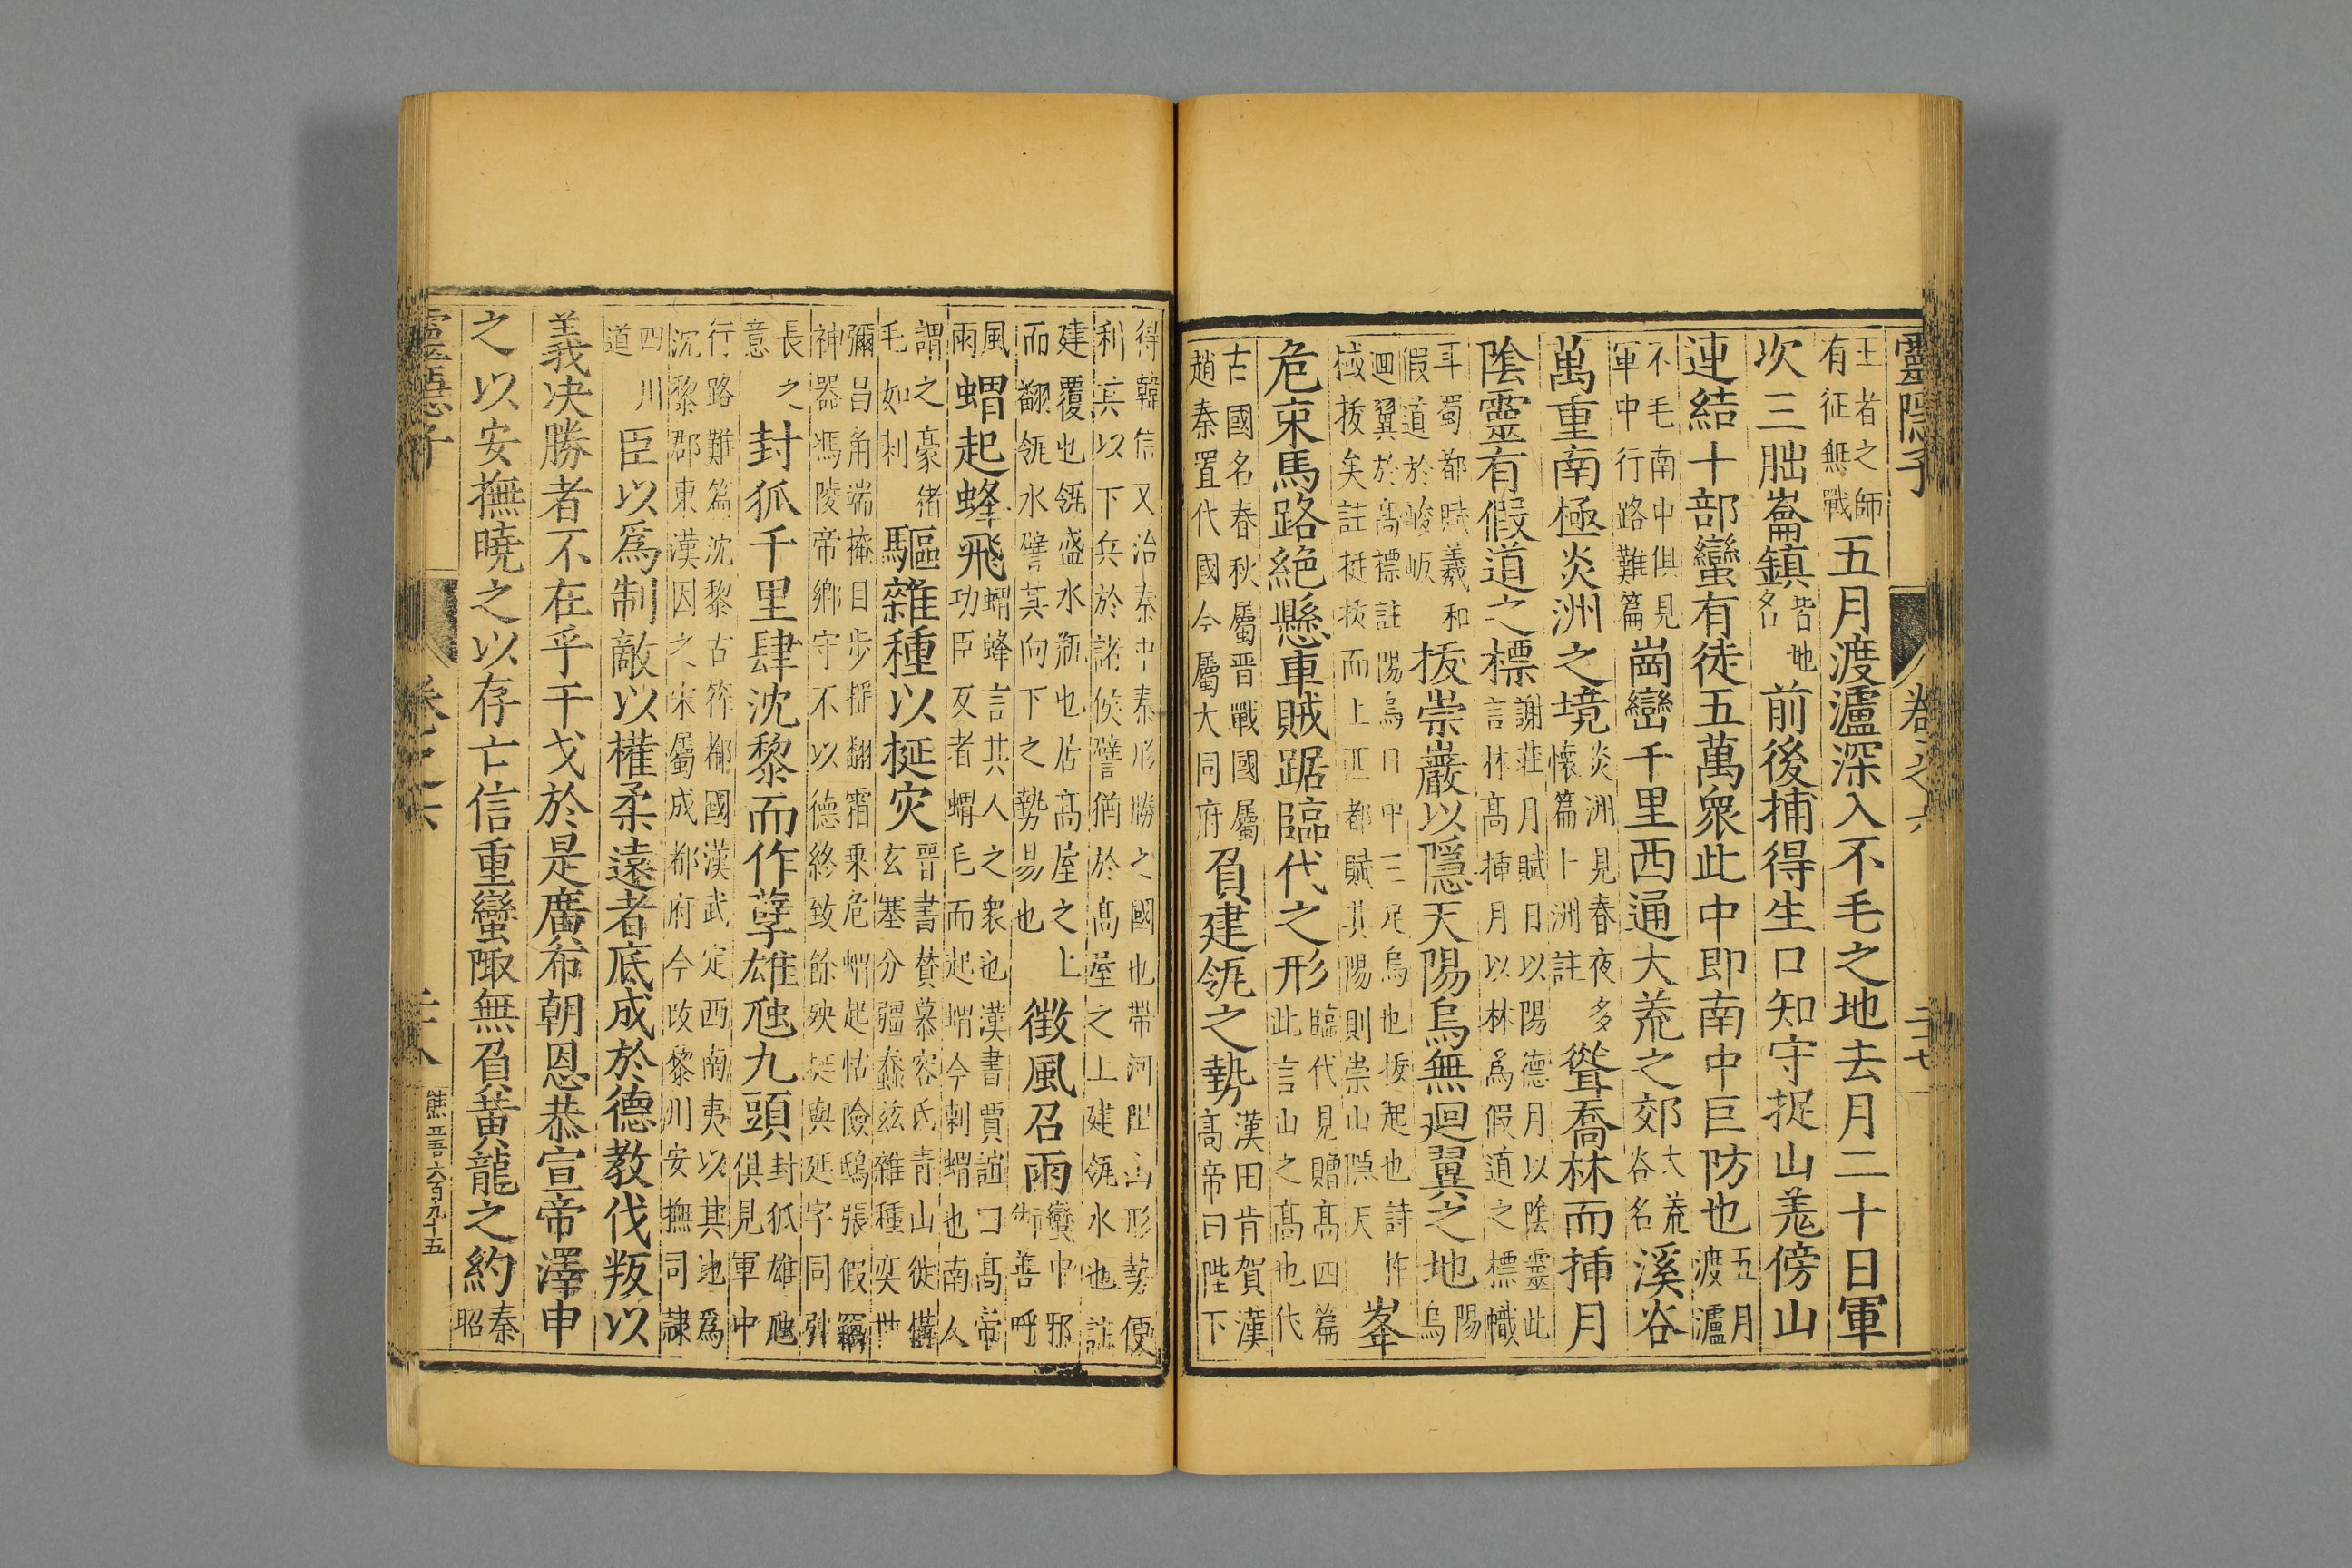 靈隱子 卷之六 二十七
王者之師有征無戰五月渡瀘深入不毛之地去月二十日軍
次三䏢崙鎮皆地名前後捕得生口知守捉山羗傍山
連結十部蠻有徒五萬衆此中即南中巨防也五月渡瀘
不毛南中俱見軍中行路難篇崗巒千里西通大荒之郊大荒谷名溪谷
萬重南極炎洲之境炎洲見春夜多懷篇卜洲註聳喬林而揷月
陰靈有假道之標謝莊月賦日以陽德月以陰靈此言林高揷月以林爲假道之標幟
耳蜀都賦羲和假道於峻岅拔崇巖以隱天陽烏無迴翼之地陽烏
迴翼於高標註陽烏日中三足烏也拔起也詩柞棫拔矣註挺拔而上西都賦其陽則崇山隱天峯
危束馬路絕懸車賊踞臨代之形臨代見贈高四篇此言山之高也代
古國名春秋屬晉戰國屬趙秦置代國今屬大同府負建瓴之勢漢田肯賀漢高帝曰陛下
得韓信又治秦中秦形勝之國也帶河阻山形勢便利其以下兵於諸侯譬猶於高屋之上建瓴水也註
建覆也瓴盛水瓶也居高屋之上而翻瓴水譬其向下之勢易也徵風召雨蠻中邪術善呼
風雨蝟起蜂飛蝟蜂言其人之衆也漢書賈誼曰高帝功臣反者蝟毛而起蝟今刺蝟也南人
謂之豪猪毛如刺驅雜種以挻灾晉書贊慕容氏青山徙搆玄塞分疆蠢兹雜種奕世
彌昌角端掩日步搖翻霜乗危蝟起怙險鴟張假竊神器馮陵帝鄉守不以德終致餘殃挻與延字同引
長之意封狐千里肆沈黎而作孽雄虺九頭封狐雄虺俱見軍中
行路難篇沈黎古筰都國漢武定西南夷以其地爲沈黎郡東漢因之宋屬成都府今改黎川安撫司隷
四川道臣以爲制敵以權柔遠者底成於德教伐叛以
義决勝者不在乎干戈於是廣布朝恩恭宣帝澤申
之以安撫曉之以存亡信重蠻陬無負黃龍之約秦昭
靈隱子 卷之六 二十八 熊正吾六百九十五